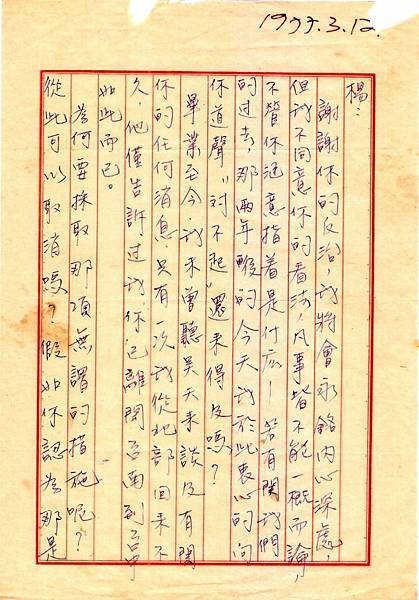 1975.3.12.
楊：
謝謝你的反治，我將會永銘內心深處，
但我不同意你的看法，凡事皆不能一概而論，
不管你涵意指着是什広—若有關我們
的过去，那兩年離的今天我於此衷心的向
你道聲，"对不起"還來得及嗎？
畢業至今，我未曾聽吳天來談及有関
你的任何消息，只有一次我從北部回來不
久，他僅告訴过我，你已離開台南到台中
如此而已。
為何要採取那项無謂的措施呢？
從此可以取消嗎？假如你認為那是